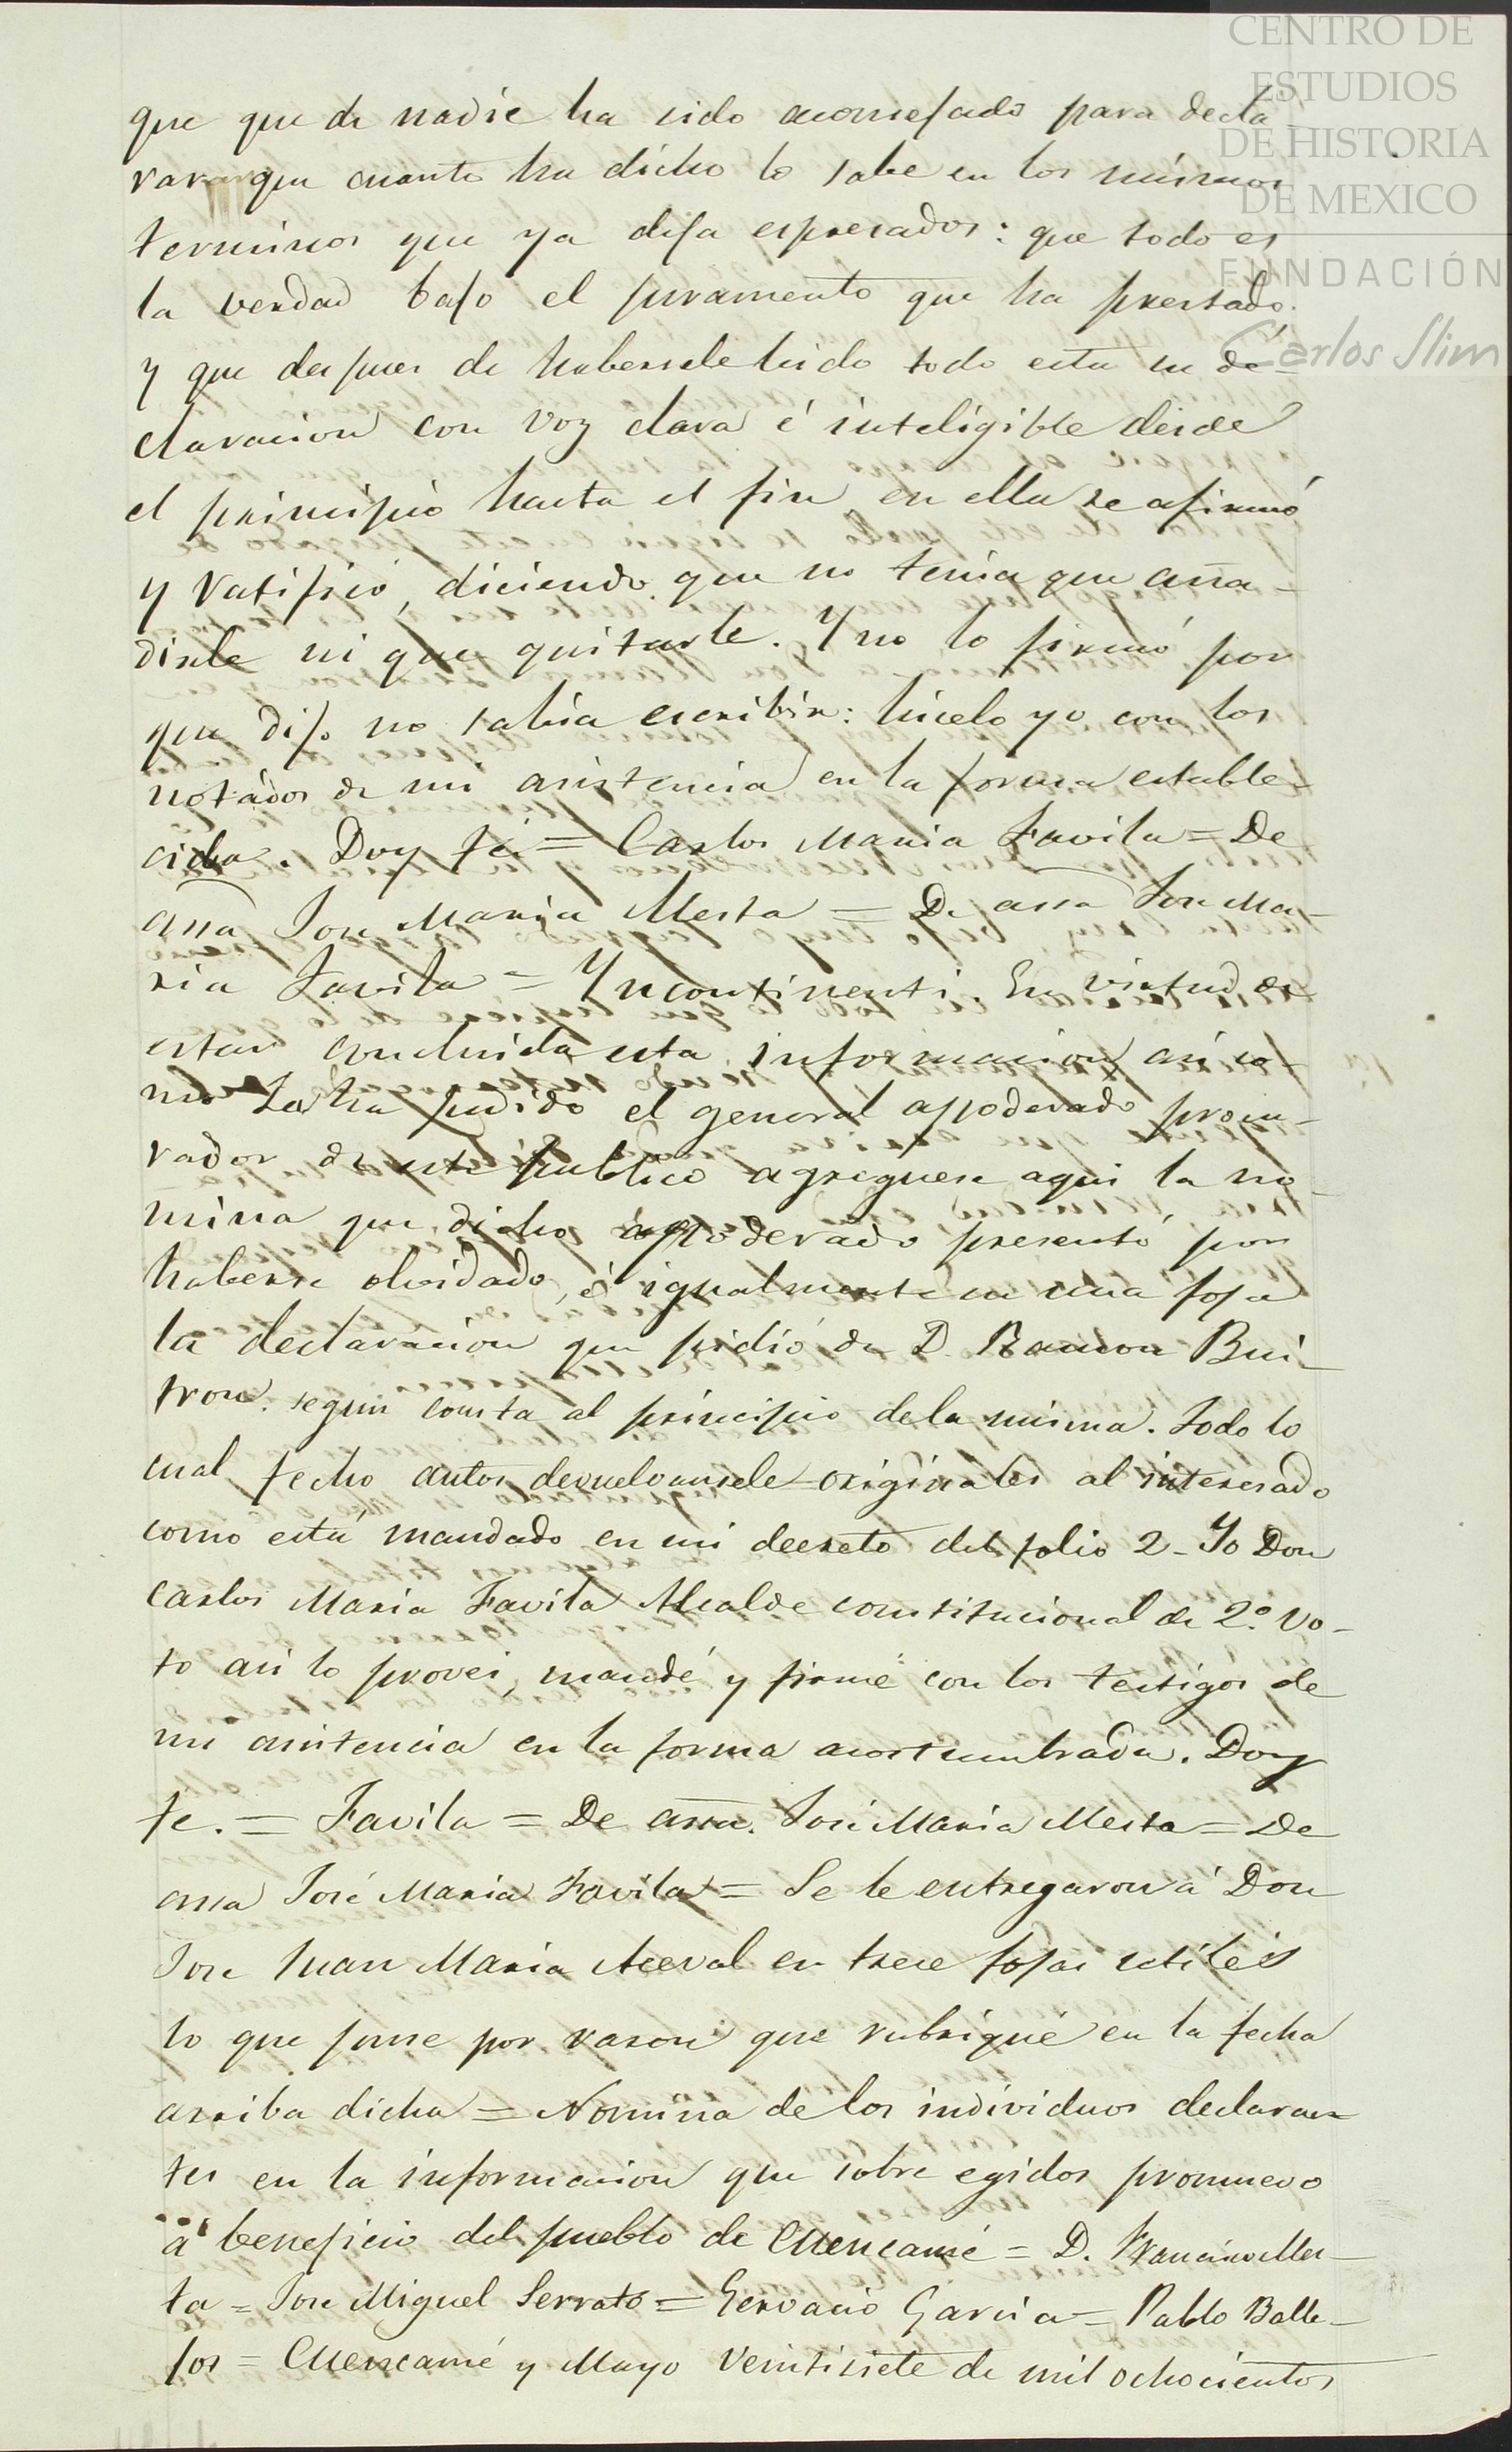 CENTRO DE
ESTUDIOS
DE HISTORIA
DE MEXICO
FUNDACIÓN
Carlos Slim
que que de nadie ha sido aconsejado para decla
rar que cuanto ha dicho lo sabe en los mismos
terminos que ya deja espresados: que todo es
la verdad bajo el juramento que ha prestado.
y que despues de habersele leido toda esta su de-
claracion con voz clara é inteligible desde
el principio hasta el fin en ella se afirmó
y ratificó, diciendo que no tenia que aña-
dirle ni que quitarle. Y no lo firmó por
que dijo no sabia escribir: hicelo yo con los
notados de mi asistencia en la forma estable-
cida. Doy fé = Carlos Maria Favila = De
assa Jose Maria Mesta = De assa Jose Ma-
ria Favila = Yncontinenti. En virtud de
estar concluida esta informacion asi co-
mo la ha pedido el general apoderado procu-
rador de este publico agreguese aqui la no-
mina que dicho apoderado presentó por
haberse olvidado, é igualmente en una foja
la declaracion que pidió de D. Ramon Bui-
tron. segun consta al principio de la misma. Todo lo
cual fecho autos devuelvansele originales al interesado
como está mandado en mi decreto del folio 2- Yo Don
Carlos Maria Favila Alcalde constitucional de 2º. Vo-
to asi lo provei, mandé y firmé con los testigos de
mi asistencia en la forma acostumbrada. Doy
fe. = Favila = De assa. José Maria Mesta = De
assa José Maria Favila = Se le entregaron á Don
Jose Juan Maria Aceval en trece fojas utiles
lo que puse por razon que rubriqué en la fecha
arriba dicha = Nomina de los individuos declaran
tes en la informacion que sobre egidos promuevo
á beneficio del pueblo de Cuencamé = D. Francisco Mes-
ta = Jose Miguel Serrato = Gervacio Garcia = Pablo Balle-
jos = Cuencamé y Mayo veintisiete de mil ochocientos